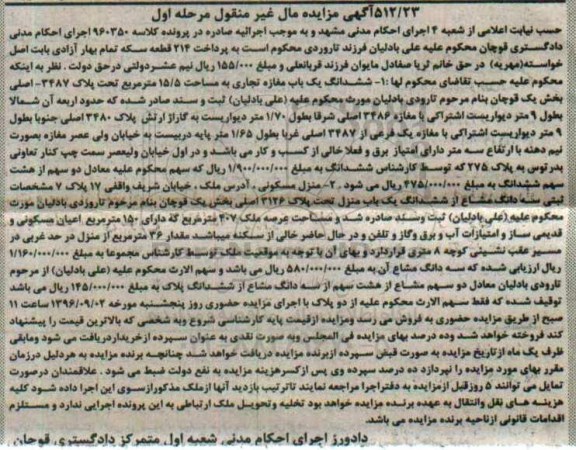 ۵۱۲/۲۳آگهی مزایده مال غیر منقول مرحله اول
حسب نیابت اعلامی از شعبه ۴ اجرای احکام مدنی مشهد و به موجب اجرائیه صادره در پرونده کلاسه ۹۶۰۳۵۰ اجرای احکام مدنی
دادگستری قوچان محکوم علیه علی بادلیان فرزند تاروردی محکوم است به پرداخت ۲۱۴ قطعه سکه تمام بهار آزادی بابت اصل
خواسته(مهریه) در حق خانم ثریا صفادل مایوان فرزند قربانعلی و مبلغ ۱۵۵/۰۰۰ ریال نیم عشردولتی درحق دولت . نظر به اینکه
محکوم علیه حسب تقاضای محکوم لها :۱- ششدانگ یک باب مغازه تجاری به مساحت ۱۵/۵ مترمربع تحت پلاک ۳۴۸۷- اصلی
بخش یک قوچان بنام مرحوم تارودی بادلیان مورث محکوم علیه (علی بادلیان) ثبت و سند صادر شده که حدود اربعه آن شمالا
بطول ۹ متر دیواریست اشتراکی با مغازه ۳۴۸۶ اصلی شرقا بطول ۱/۷۰ متر دیواریست به گاراژ ارتش پلاک ۳۴۸۰ اصلی جنوبا بطول
۹ متر دیواریست اشتراکی با مغازه یک فرعی از ۳۴۸۷ اصلی غربا بطول ۱/۶۵ متر پایه دربیست به خیابان ولی عصر مغازه بصورت
نیم دهنه با ارتفاع سه متر دارای امتیاز برق و فعلا خالی از کسب و کار می باشد و در اول خیابان ولیعصر سمت چپ کنار تعاونی
بدر توس به پلاک ۲۷۵ که توسط کارشناس ششدانگ به مبلغ ۱/۹۰۰/۰۰۰/۰۰۰ ریال که سهم محکوم علیه معادل دو سهم از هشت
سهم ششدانگ به مبلغ ۴۷۵/۰۰۰/۰۰۰ ریال می شود .۲- منزل مسکونی ، آدرس ملک ، خیابان شریف واقفی ۱۷ پلاک ۷ مشخصات
ثبتی سه دانگ مشاع از ششدانگ یک باب منزل تحت پلاک ۳۱۲۶ اصلی بخش یک قوچان بنام مرحوم تاروزدی بادلیان مورث
محکوم علیه (علی بادلیان) ثبت وسند صادر شده و مساحت عرصه ملک ۴۰۷ مترمربع که دارای ۱۵۰ مترمربع اعیان مسکونی و
قدیمی ساز و امتیازات آب و برق وگاز و تلفن و در حال حاضر خالی از سکنه میباشد مقدار ۳۶ مترمربع از منزل در حد غربی در
مسیر عقب نشینی کوچه ۸ متری قراردارد و بهای آن با توجه به موقعیت ملک توسط کارشناس مجموعا به مبلغ ۱/۱۶۰/۰۰۰/۰۰۰
ریال ارزیابی شده که سه دانگ مشاع آن به مبلغ ۵۸۰/۰۰۰/۰۰۰ ریال می باشد و سهم الارث محکوم علیه (علی بادلیان) از مرحوم
تارودی بادلیان معادل دو سهم مشاع از هشت سهم از سه دانگ مشاع از ششدانگ پلاک به مبلغ ۱۴۵/۰۰۰/۰۰۰ ریال می باشد
توقیف شده که فقط سهم الارث محکوم علیه از دو پلاک با اجرای مزایده حضوری روز پنجشنبه مورخه ۱۳۹۶/۰۹/۰۲ ساعت ۱۱
صبح از طریق مزایده حضوری به فروش می رسد ومزایده ازقیمت پایه کارشناسی شروع وبه شخصی که بالاترین قیمت را پیشنهاد
کند فروخته خواهد شد وده درصد بهای مزایده فی المجلس وبه صورت نقدی به عنوان سپرده ازخریداردریافت می شود ومابقی
ظرف یک ماه ازتاریخ مزایده به صورت قبض سپرده ازبرنده مزایده دریافت خواهد شد چنانچه برنده مزایده به هردلیل درزمان
مقرر بهای مورد مزایده را نپردازد ده درصد سپرده وی پس از کسرهزینه مزایده به نفع دولت ضبط می شود . علاقمندان درصورت
تمایل می توانند ۵ روزقبل ازمزایده به دفتراجرا مراجعه نمایند تاترتیب بازدید آنها ازملک مذکورازسوی این اجرا داده شود کلیه
هزینه های نقل والنتقال به عهده برنده مزایده خواهد بود تخلیه وتحویل ملک ارتباطی به این پرونده اجرایی ندارد و مستلزم
اقدامات قانونی ازناحیه برنده مزایده می باشد.
دادورز اجرای احکام مدنی شعبه اول متمرکز دادگستری قوچان